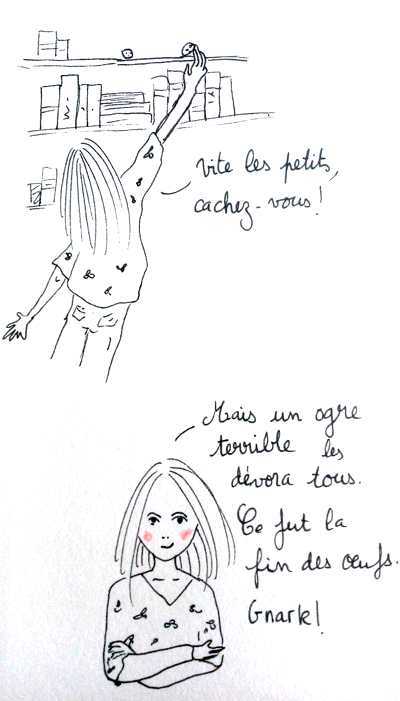 vite les petits,
cachez-vous!
Mais un ogre
terrible les
dévora tous.
Ce fut la
fin des œufs.
Gnark!